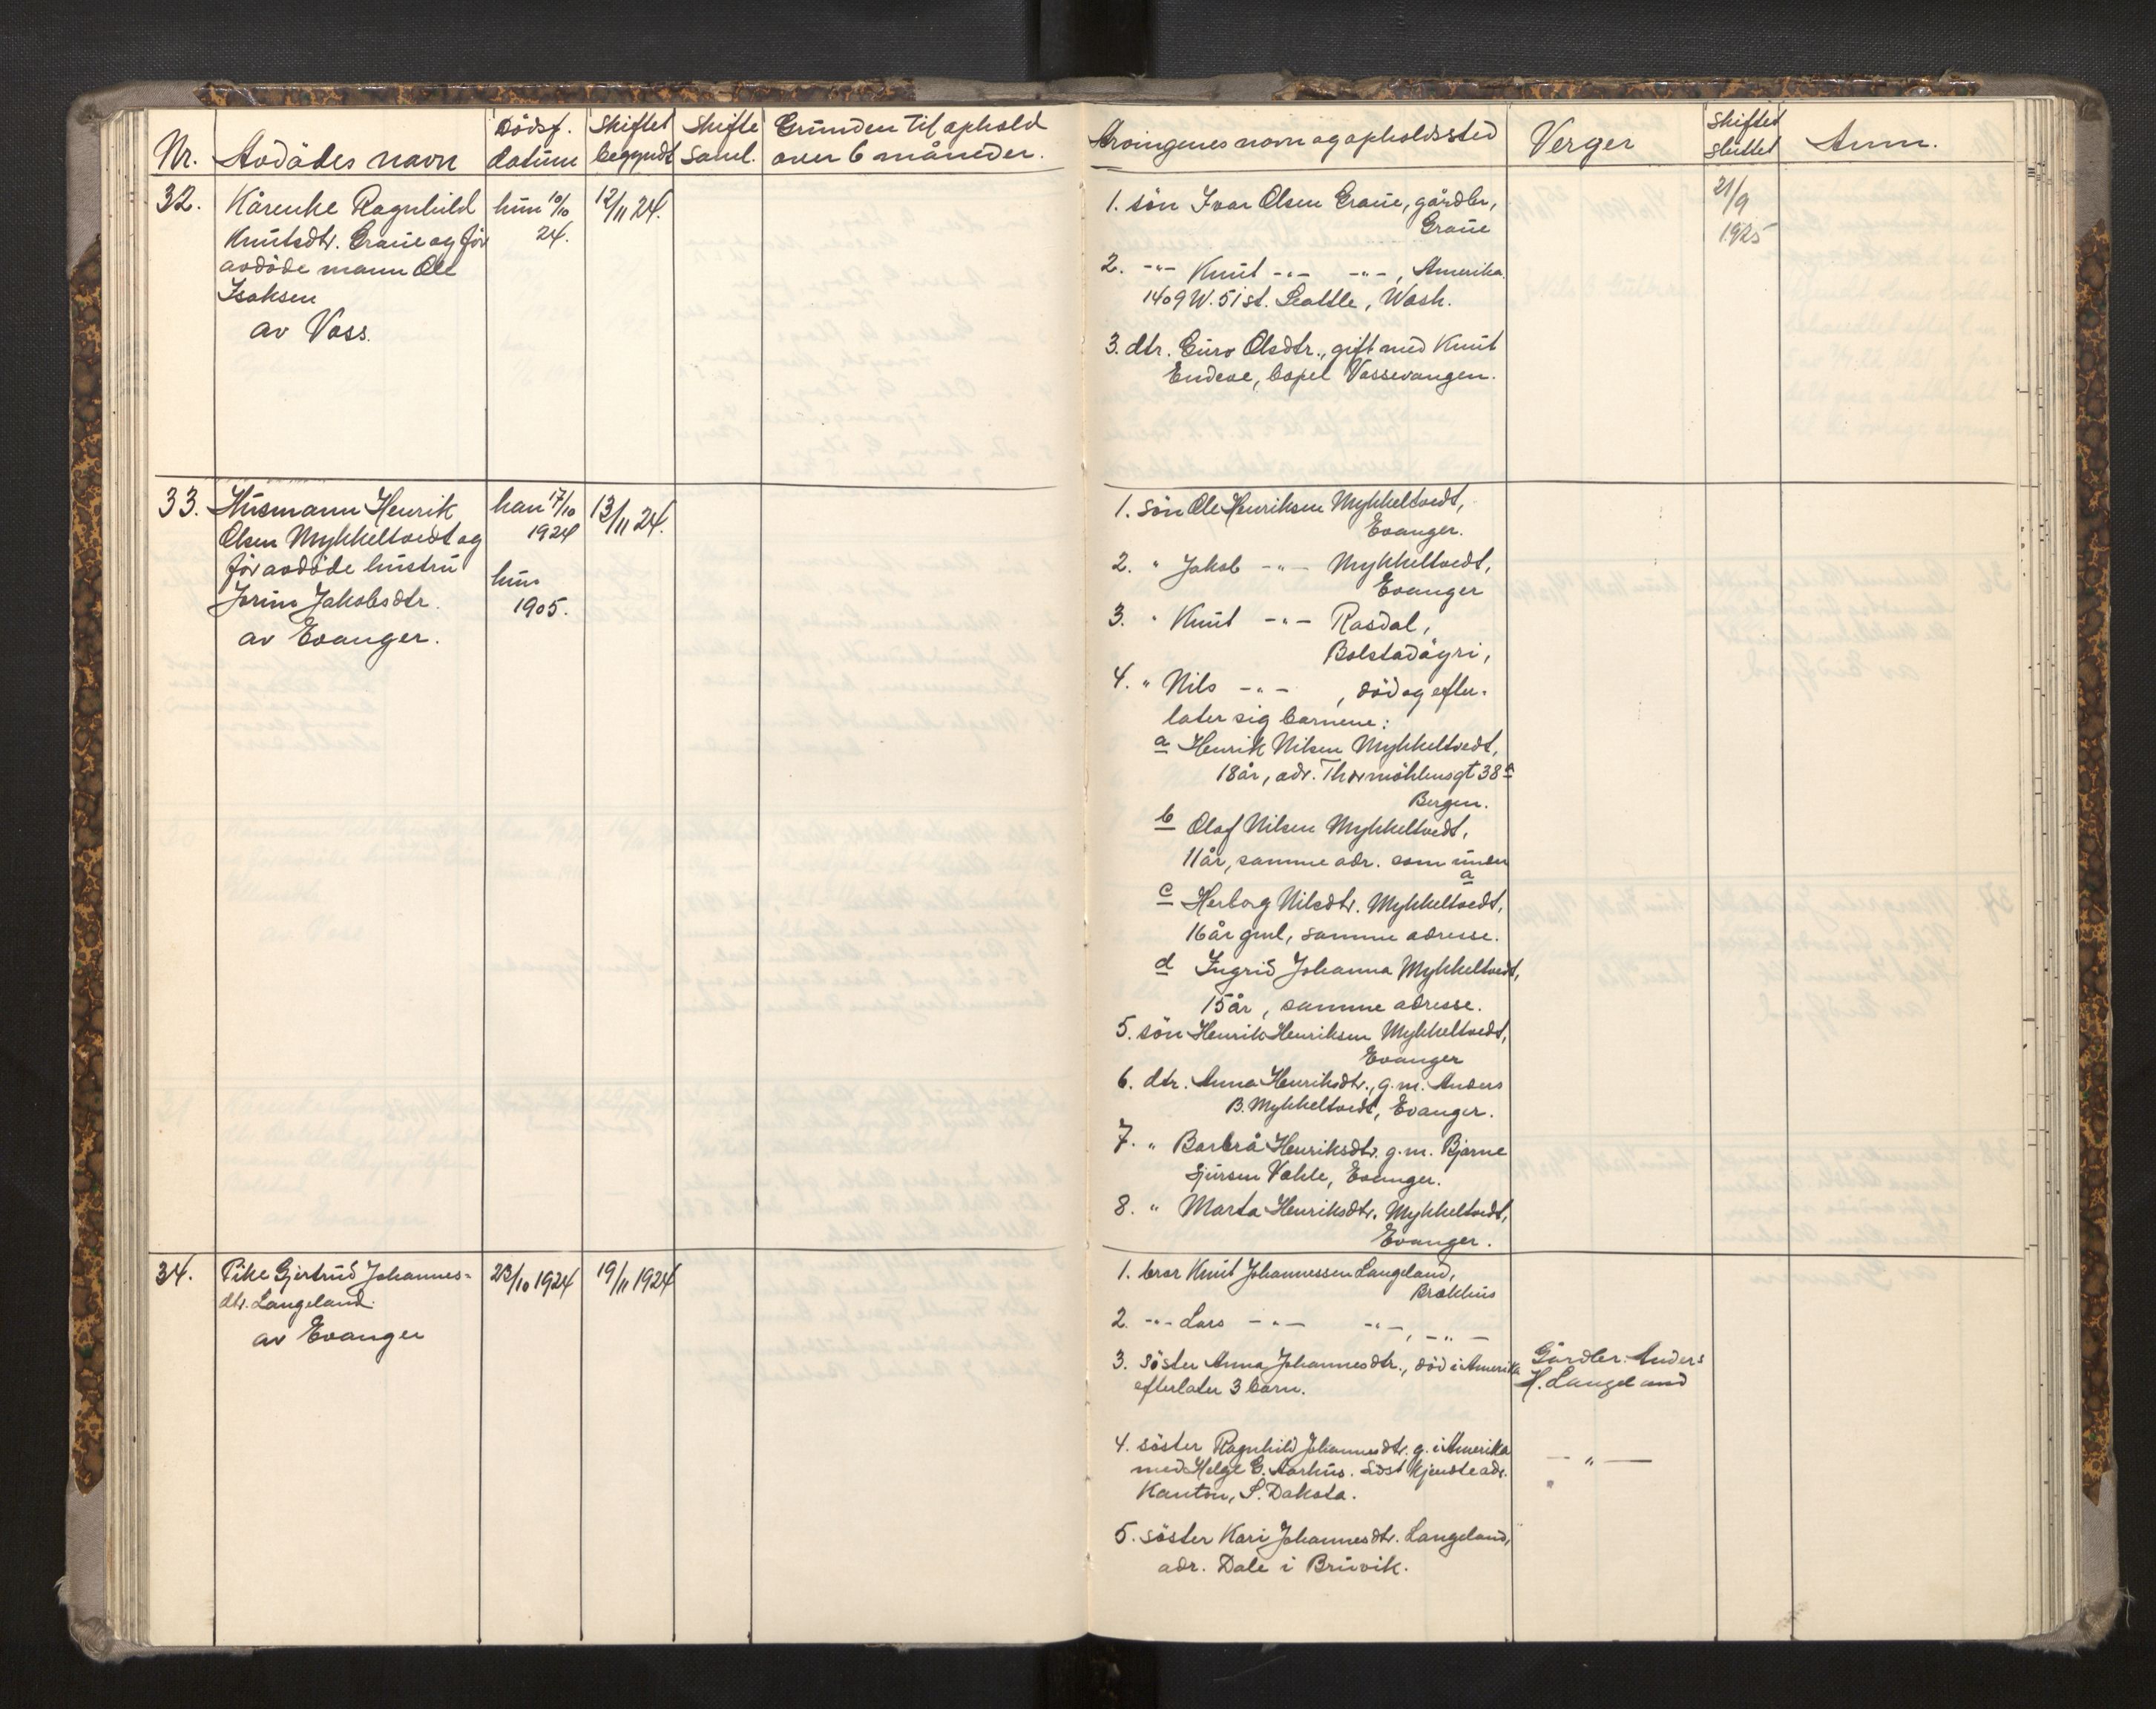 Nr. Avdödes navn
Dödsf. datum
Skiftet begyndt
Skifte saml.
Grunden til ophold over 6 måneder.
Arvingenes navn og opholdssted
Verger
Skiftet sluttet
Anm.
32. Kårenke Ragnhild
Knutsdtr. Graue og för
avdöde mann Ole
Isaksen
av Voss.
hun 10/10
24.
12/11 24.
1. sön Ivar Olsen Graue, gårdbr,
Graue
2. -"- Knut -"- -"-, Amerika
1409 W. 51 st. Seattle, Wash.
3. dtr. Guro Olsdtr., gift med Knut
Endeve, bopel Vossevangen.
21/9
1925
33. Husmann Henrik
Olsen Mykkeltvedt og
för avdöde hustru
Jorun Jakobsdtr.
av Evanger.
han 17/10
1924
hun
1905.
13/11 24.
1. sön Ole Henriksen Mykkeltvedt,
Evanger.
2. " Jakob -"- Mykkeltvedt,
Evanger
3. " Knut -"- Rasdal,
Bolstadöyri,
4. " Nils -"- , död og efter-
later sig barnene:
a Henrik Nilsen Mykkeltvedt,
18 år, adr. Thormöhlensgt 38a
Bergen.
b Olaf Nilsen Mykkeltvedt,
11 år, samme adr. som under
a
c Herborg Nilsdtr. Mykkeltvedt,
16 år gml, samme adresse.
d Ingrid Johanna Mykkeltvedt,
15 år, samme adresse.
5. sön Henrik Henriksen Mykkeltvedt,
Evanger
6. dtr. Anna Henriksdtr., g.m. Anders
B. Mykkeltvedt, Evanger.
7. " Barbrå Henriksdtr. g.m. Bjarne
Sjursen Vähle, Evanger.
8. " Marta Henriksdtr. Mykkeltvedt,
Evanger.
34. Pike Gjertrud Johannes-
dtr. Langeland.
av Evanger
23/10 1924
19/11 1924
1. bror Knut Johannessen Langeland,
Brakhus
2. -"- Lars -"- -"-, -"-
3. Söster Anna Johannesdtr., död i Amerika
efterlater 3 barn.
Gårdbr. Anders
H. Langeland
4. söster Ragnhild Johannesdtr. g. i Amerika
med Helge G. Aarhus. Sidst kjendte adr.
Kanton, S. Dakota.
-"-
5. söster Kari Johannesdtr. Langeland,
adr. Dale i Bruvik.